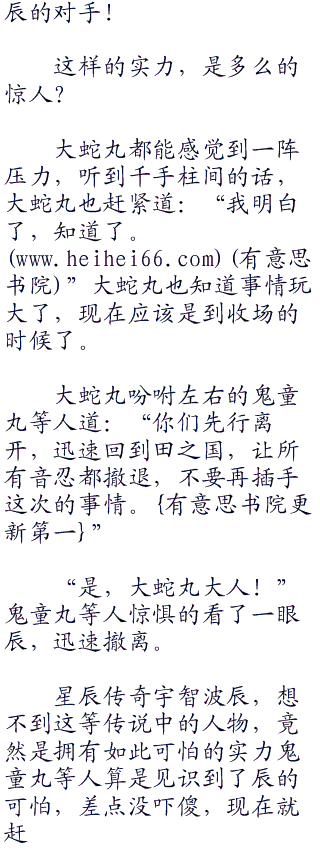 辰的对手！
这样的实力，是多么的
惊人？
大蛇丸都能感觉到一阵
压力，听到千手柱间的话，
大蛇丸也赶紧道：“我明白
了，知道了。
(www.heihei66.com)(有意思
书院)”大蛇丸也知道事情玩
大了，现在应该是到收场的
时候了。
大蛇丸吩咐左右的鬼童
丸等人道：“你们先行离
开，迅速回到田之国，让所
有音忍都撤退，不要再插手
这次的事情。{有意思书院更
新第一}”
“是，大蛇丸大人！”
鬼童丸等人惊惧的看了一眼
辰，迅速撤离。
星辰传奇宇智波辰，想
不到这等传说中的人物，竟
然是拥有如此可怕的实力鬼
童丸等人算是见识到了辰的
可怕，差点没吓傻，现在就
赶